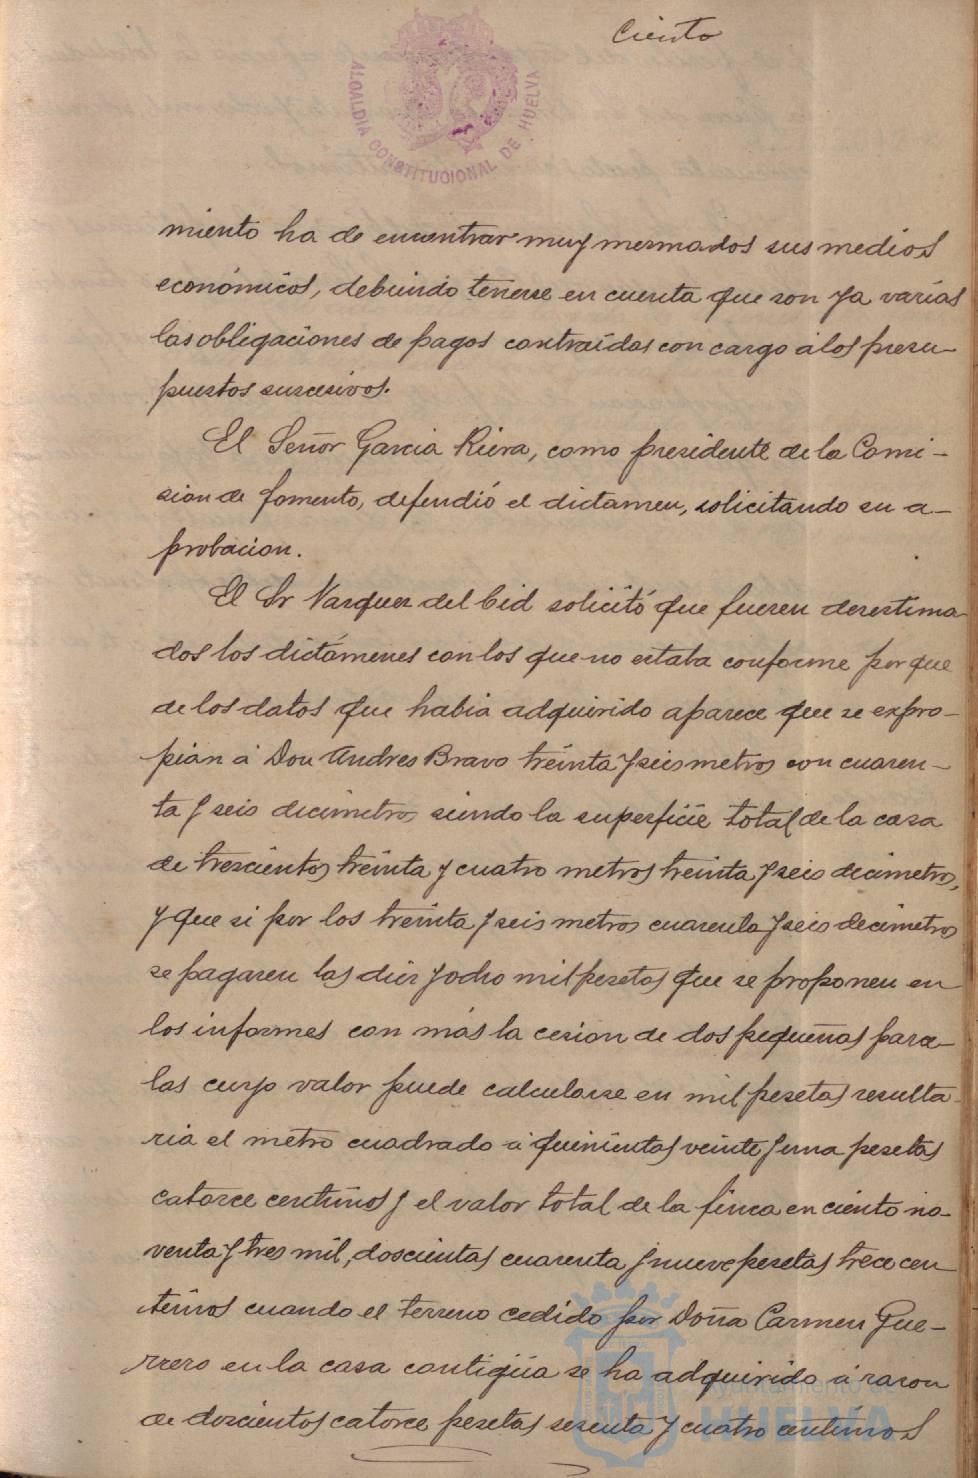 Ciento
ALCALDIA CONSTITUCIONAL DE HUELVA
miento ha de encontrar muy mermados sus medios
económicos, debiendo tenerse en cuenta que son ya varias
las obligaciones de pagos contraídas con cargo á los presu-
puestos sucesivos.
El Señor Garcia Riera, como presidente de la Comi-
sion de fomento, defendió el dictamen, solicitando su a-
probacion.
El Sr Vazquez del Cid solicitó que fuesen desestima
dos los dictámenes con los que no estaba conforme por que
de los datos que habia adquirido aparece que se expro-
pian á Don Andres Bravo treinta y seis metros con cuaren-
ta y seis decimetros siendo la superficie total de la casa
de trescientos treinta y cuatro metros treinta y seis decimetros,
y que si por los treinta y seis metros cuarenta y seis decimetros
se pagasen las diez y ocho mil pesetas que se proponen en
los informes con más la cesion de dos pequeñas parce-
las cuyo valor puede calcularse en mil pesetas resulta-
ria el metro cuadrado á quinientas veinte y una pesetas
catorce centimos y el valor total de la finca en ciento no-
venta y tres mil, doscientas cuarenta y nueve pesetas trece cen
timos cuando el terreno cedido por Doña Carmen Gue-
rrero en la casa contigüa se ha adquirido á razon
de doscientos catorce pesetas sesenta y cuatro centimos
Ayuntamiento de
HUELVA